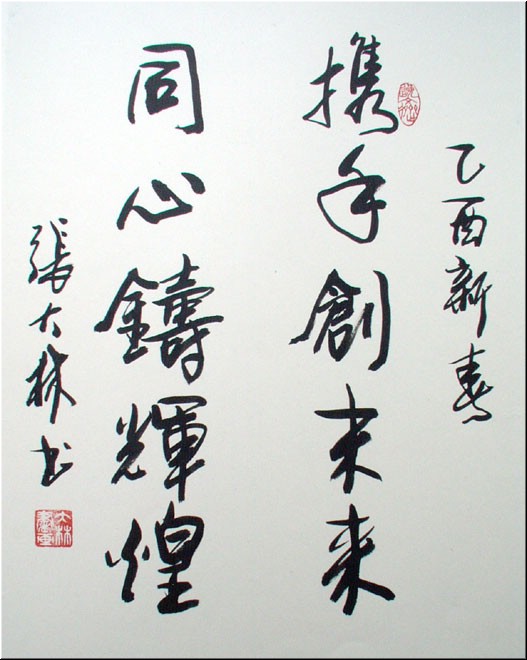 乙酉新春
携手創未来
同心鑄輝煌
張大林书